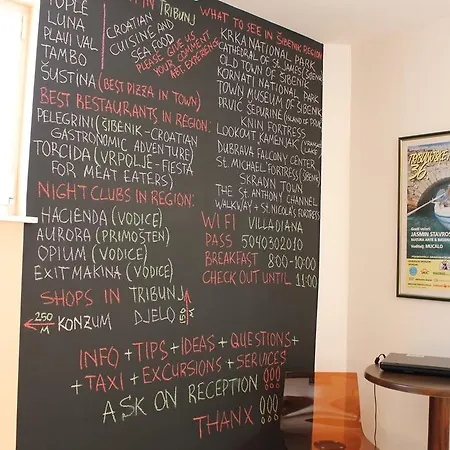 TOPLE
LUNA
PLAVI VAL
TAMBO
ŠUSTINA (BEST PIZZA IN TOWN)
IN TRIBUNJ
CROATIAN
CUISINE AND
SEA FOOD
PLEASE GIVE US
YOUR COMMENT
ABT. EXPERIENCE
BEST RESTAURANTS IN REGION:
PELEGRINI (ŠIBENIK-CROATIAN
GASTRONOMIC ADVENTURE)
TORCIDA (VRPOLJE-FIESTA
FOR MEAT EATERS)
NIGHT CLUBS IN REGION:
HACIENDA (VODICE)
AURORA (PRIMOŠTEN)
OPIUM (VODICE)
EXIT MAKINA (VODICE)
SHOPS IN TRIBUNJ
250 M KONZUM
DJELO 50 M
WHAT TO SEE IN ŠIBENIK REGION
KRKA NATIONAL PARK
CATHEDRAL OF ST. JAMES (ŠIBENIK)
OLD TOWN OF ŠIBENIK
KORNATI NATIONAL PARK
TOWN MUSEUM OF ŠIBENIK
PRVIĆ ŠEPURINE (ISLAND OF PRVIĆ)
KNIN FORTRESS
LOOKOUT KAMENJAK (VRANSKO
LAKE)
DUBRAVA FALCONRY CENTER
ST. MICHAEL FORTRESS (ŠIBENIK)
SKRADIN TOWN
THE ST. ANTHONY CHANNEL
WALKWAY + ST. NICOLA'S FORTRESS
WIFI VILLADIANA
PASS 5040302010
BREAKFAST 8:00-10:00
CHECK OUT UNTIL 11:00
INFO + TIPS + IDEAS + QUESTIONS +
+ TAXI + EXCURSIONS + SERVICES
ASK ON RECEPTION !!!
THANX !!!
36.
JASMIN STAVROS